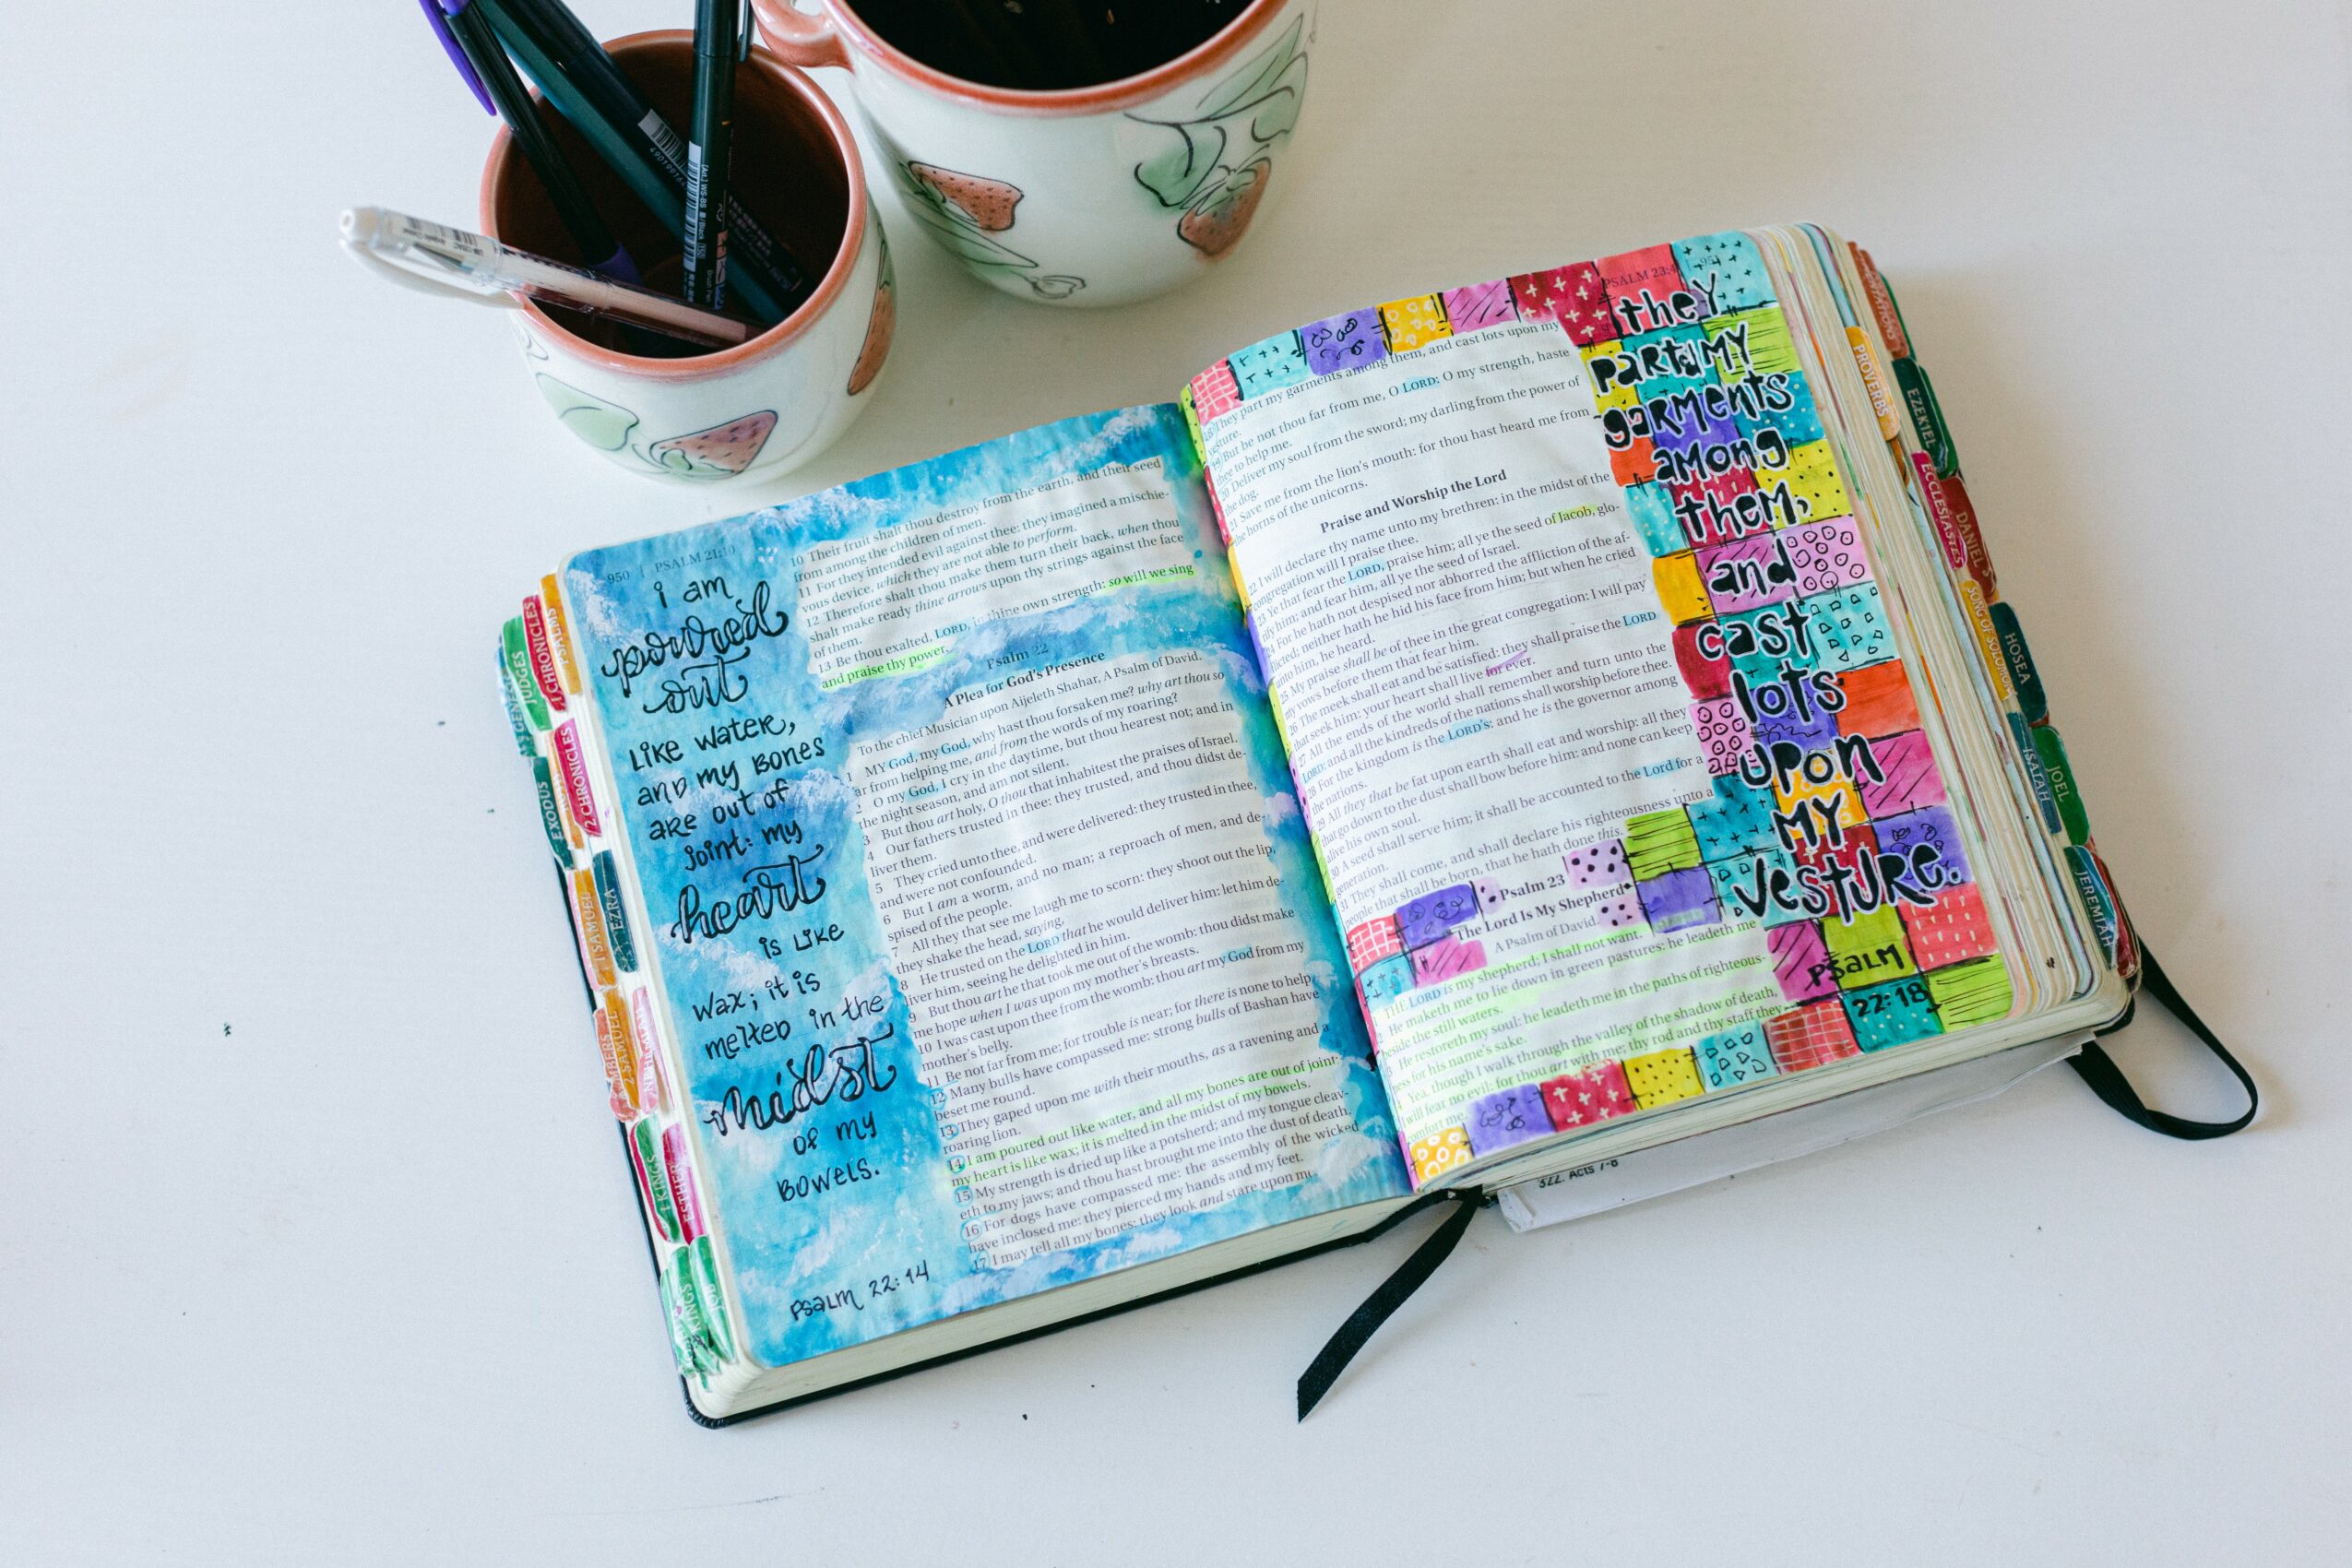 950 | PSALM 21:10
i am
poured
out
like water,
and my bones
are out of
joint: my
heart
is like
wax; it is
melted in the
midst
of my
bowels.
psalm 22:14
10 Their fruit shalt thou destroy from the earth, and their seed
from among the children of men.
11 For they intended evil against thee: they imagined a mischie-
vous device, which they are not able to perform.
12 Therefore shalt thou make them turn their back, when thou
shalt make ready thine arrows upon thy strings against the face
of them.
13 Be thou exalted, LORD, in thine own strength: so will we sing
and praise thy power.
Psalm 22
A Plea for God's Presence
To the chief Musician upon Aijeleth Shahar, A Psalm of David.
1 MY God, my God, why hast thou forsaken me? why art thou so
far from helping me, and from the words of my roaring?
2 O my God, I cry in the daytime, but thou hearest not; and in
the night season, and am not silent.
3 But thou art holy, O thou that inhabitest the praises of Israel.
4 Our fathers trusted in thee: they trusted, and thou didst de-
liver them.
5 They cried unto thee, and were delivered: they trusted in thee,
and were not confounded.
6 But I am a worm, and no man; a reproach of men, and de-
spised of the people.
7 All they that see me laugh me to scorn: they shoot out the lip,
they shake the head, saying,
8 He trusted on the LORD that he would deliver him: let him de-
liver him, seeing he delighted in him.
9 But thou art he that took me out of the womb: thou didst make
me hope when I was upon my mother's breasts.
10 I was cast upon thee from the womb: thou art my God from my
mother's belly.
11 Be not far from me; for trouble is near; for there is none to help.
12 Many bulls have compassed me: strong bulls of Bashan have
beset me round.
13 They gaped upon me with their mouths, as a ravening and a
roaring lion.
14 I am poured out like water, and all my bones are out of joint:
my heart is like wax; it is melted in the midst of my bowels.
15 My strength is dried up like a potsherd; and my tongue cleav-
eth to my jaws; and thou hast brought me into the dust of death.
16 For dogs have compassed me: the assembly of the wicked
have inclosed me: they pierced my hands and my feet.
17 I may tell all my bones: they look and stare upon me.
PSALM 23:4 | 951
18 They part my garments among them, and cast lots upon my
vesture.
19 But be not thou far from me, O LORD: O my strength, haste
thee to help me.
20 Deliver my soul from the sword; my darling from the power of
the dog.
21 Save me from the lion's mouth: for thou hast heard me from
the horns of the unicorns.
Praise and Worship the Lord
22 I will declare thy name unto my brethren: in the midst of the
congregation will I praise thee.
23 Ye that fear the LORD, praise him; all ye the seed of Jacob, glo-
rify him; and fear him, all ye the seed of Israel.
24 For he hath not despised nor abhorred the affliction of the af-
flicted; neither hath he hid his face from him; but when he cried
unto him, he heard.
25 My praise shall be of thee in the great congregation: I will pay
my vows before them that fear him.
26 The meek shall eat and be satisfied: they shall praise the LORD
that seek him: your heart shall live for ever.
27 All the ends of the world shall remember and turn unto the
LORD: and all the kindreds of the nations shall worship before thee.
28 For the kingdom is the LORD's: and he is the governor among
the nations.
29 All they that be fat upon earth shall eat and worship: all they
that go down to the dust shall bow before him: and none can keep
alive his own soul.
30 A seed shall serve him; it shall be accounted to the Lord for a
generation.
31 They shall come, and shall declare his righteousness unto a
people that shall be born, that he hath done this.
Psalm 23
The Lord Is My Shepherd
A Psalm of David.
THE LORD is my shepherd; I shall not want.
He maketh me to lie down in green pastures: he leadeth me
beside the still waters.
He restoreth my soul: he leadeth me in the paths of righteous-
ness for his name's sake.
Yea, though I walk through the valley of the shadow of death,
I will fear no evil: for thou art with me; thy rod and thy staff they
comfort me.
they
part my
garments
among
them,
and
cast
lots
upon
my
vesture.
psalm
22:18
JUDGES
1 CHRONICLES
PSALMS
EXODUS
2 CHRONICLES
1 SAMUEL
EZRA
2 SAMUEL
NEHEMIAH
1 KINGS
ESTHER
PROVERBS
EZEKIEL
ECCLESIASTES
DANIEL
SONG OF SOLOMON
HOSEA
ISAIAH
JOEL
JEREMIAH